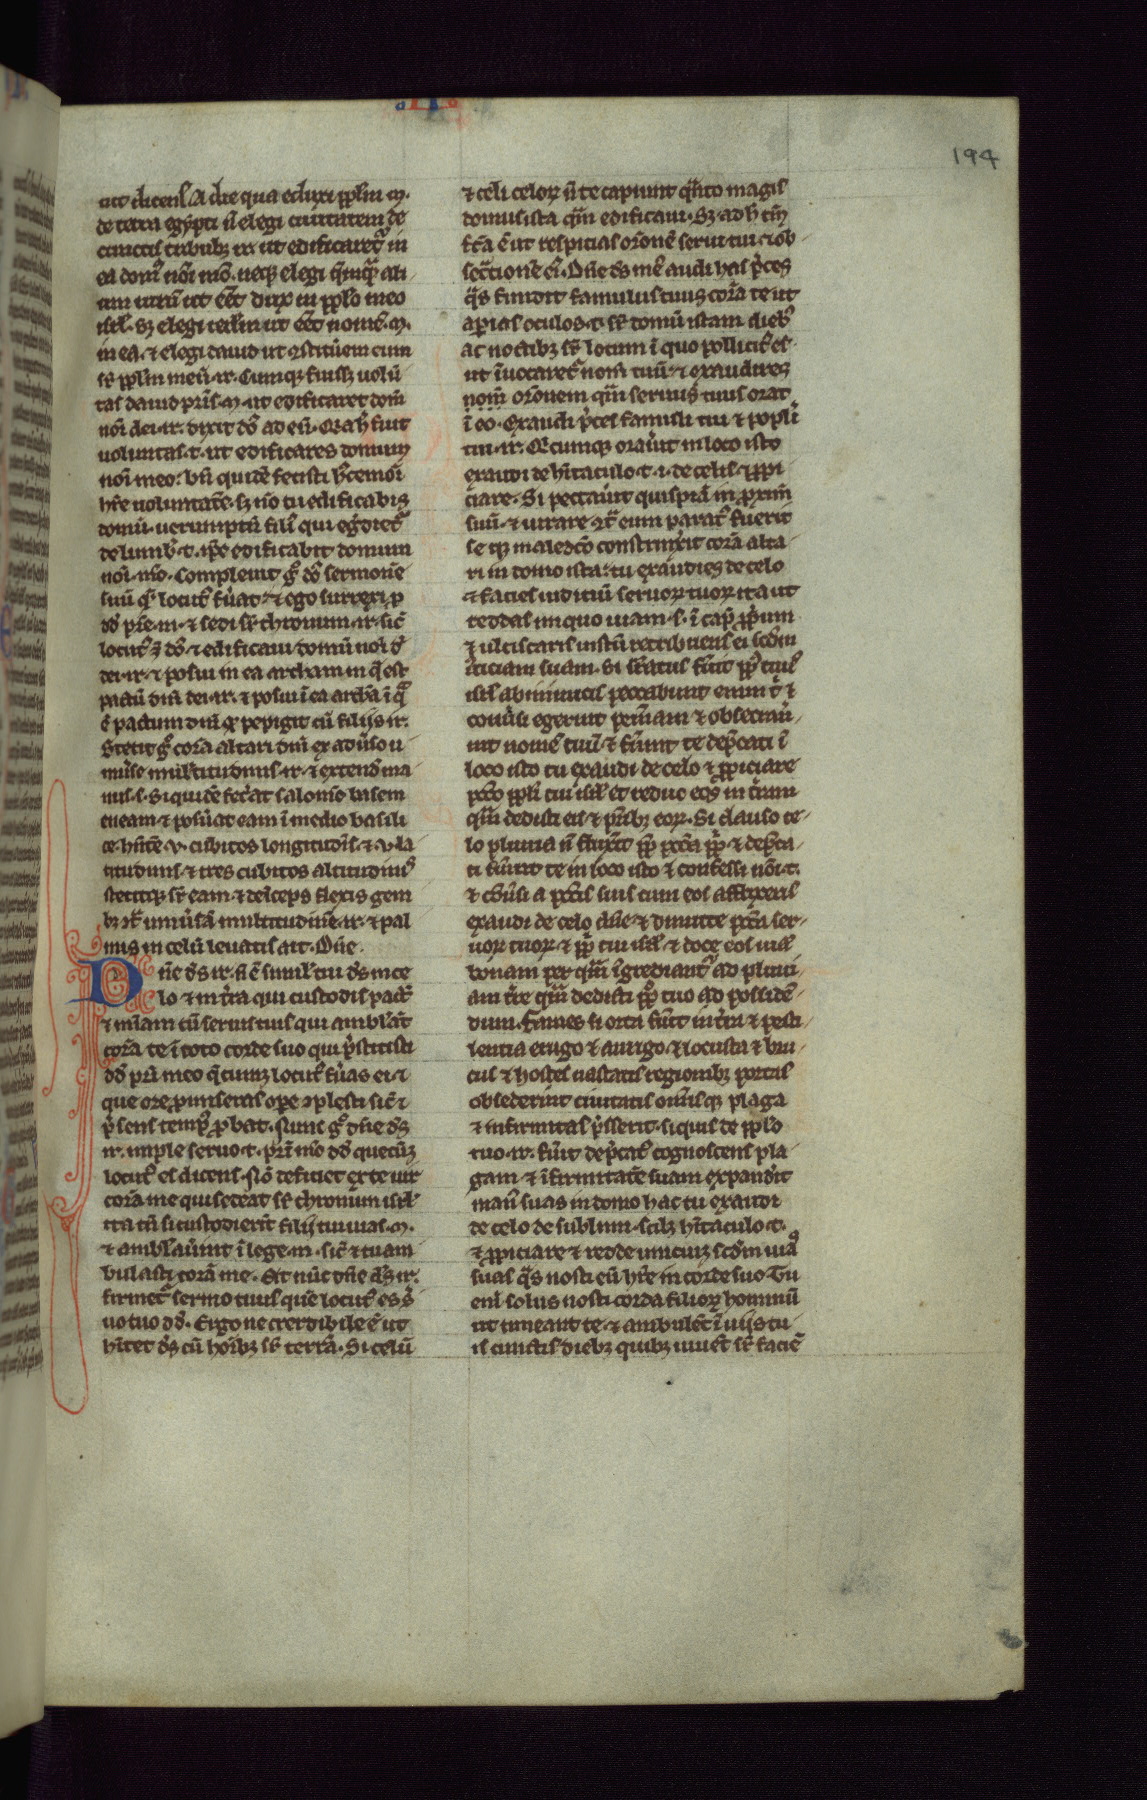 194
uit dicens. A die qua eduxi pplm m.
de terra egypti n̄ elegi ciuitatem de
cunctis tribubꝫ ir̄ ut edificaretᷣ in
ea domꝰ noī mō. neqꝫ elegi q̄mqᷓ ali
um uirū ut eēt dux in pplo meo
isrl̓. sꝫ elegi ierlm̄ ut eēt nomē. m.
in ea. ⁊ elegi dauid ut ꝯstituem eum
sr̄ pplm̄ meū. ir̄. Cumqꝫ fuissꝫ uolū
tas dauid pr̄is. m. ut edificaret domū
noī dei. ir̄. dixit dō ad eū. Q̇a h̄ fuit
uoluntas. t. ut edificares domum
noī meo. bn̄ quidē fecisti h̄cemōi
hr̄e uoluntatē. sꝫ nō tu edificabis
domū. uerumptn̄ filiꝰ qui egredietᷣ
de lumbꝭ. t. ip̄e edificabit domum
noī. mō. Compleuit gͦ dō sermonē
suū qͥ locutꝰ fūat. ⁊ ego surrexi ꝓ
dd̓ pr̄e. m. ⁊ sedi sr̄ thronum. ir̄. sic̄
locutꝰ ē dō. ⁊ edificaui domū noī dī
dei. ir̄. ⁊ posui in ea archam in q̄ est
pactū dnī dei. ir̄. ⁊ posui ī ea archā ī qᷓ
ē pactum dnī qͦ pepigit cū filijs ir̄.
Stetit gͦ corā altari dnī ex adūso u
niūse multitudinis. ir̄. ⁊ extend̓ ma
nus. s. Siquidē fec̄at salomō basem
eneam. ⁊ posūat eam ī medio basili
ce. hn̄tē. v. cubitos longitudīs. ⁊ v. la
titudinis. ⁊ tres cubitos altitudinis
stetitqꝫ sr̄ eam. ⁊ deīceps flexis geni
bꝫ ꝯt̄ uniūsā multitudinē. ir̄. ⁊ pal
mis in celū leuatis ait. Dn̄e.
Dn̄e ds̄ ir̄. n̄ ē similꝭ tui ds̄ in ce
lo ⁊ in tr̄a qui custodis pactū
⁊ mīam cū seruis tuis qui ambl̓āt
corā te ī toto corde suo qui p̄stitisti
dd̓ pr̄i meo q̄cumqꝫ locutꝰ fūas ei. ⁊
que ore ꝓmiseras oꝑe ꝯplesti sic̄ ⁊
p̄sens tempꝰ ꝓbat. Nunc gͦ dn̄e ds̄
ir̄. imple seruo. t. pr̄i mō dd̓ quecūqꝫ
locutꝰ es dicens. Nō deficiet ex te uir
corā me qui sedeat sr̄ thronum isrl̓
ita tn̄ si custodierīt filij tui uias. m.
⁊ amblaūint ī lege. m. sic̄ ⁊ tu am
bulasti corā me. Et nūc dn̄e ds̄ ir̄.
firmetᷣ sermo tuus quē locutꝰ es s̄
uo tuo dd̓. Ergo ne credibile ē ut
hītet ds̄ cū hoībꝫ sr̄ terrā. Si celū
⁊ celi celoꝝ n̄ te capiunt qn̄to magis
domus ista qm̄ edificaui. Sꝫ ad h̄ tm̄
fc̄a ē ut respicias orōnē serui tui. ⁊ ob
secrationē eiꝰ. Dn̄e ds̄ mē audi has p̄ces
qᷓs fundit famulus tuus corā te ut
aperias oculos. t. sr̄ domū istam diebꝫ
ac noctibꝫ sr̄ locum ī quo pollicitꝰ es.
ut īuocaretᷣ nom̄ tuū. ⁊ exaudires
orōnem qm̄ seruus tuus orat
ī eo. Exaudi p̄ces famuli tui ⁊ popli
tui. ir̄. Qͥcumqꝫ orauīt in loco isto
exaudi de hītaculo. t. i. de celis. ⁊ ꝓpi
ciare. Si peccauīt quispiā in ꝓximū
suū. ⁊ iurare ꝯt̄ eum paratꝰ fuerit
se qꝫ maledcō constrinxīt corā alta
ri in domo ista. tu exaudies de celo
⁊ facies iuditiū seruoꝝ tuoꝝ ita ut
reddas iniquo uiam. s. ī caput ꝓprium
⁊ ulciscaris iustū retribuens ei scd̄m
iticiam suam. Si suꝑatus fūit ppl̓s tuus
isrl̓ ab inimicis peccabunt enim t̄ ⁊
conūsi egerint penitꝫ̄am ⁊ obsecraū
int nomē tuū ⁊ fūint te dep̄cati ī
loco isto tu exaudi de celo ⁊ ꝓpiciare
pctō ppl̓i tui isrl̓ et reduc eos in tr̄am
qm̄ dedisti eis ⁊ pr̄ibꝫ eoꝝ. Si clauso ce
lo pluuia n̄ fluxīt ꝓp̄ pctā ppl̓i ⁊ dep̄ca
ti fūint te in loco isto ⁊ confessi noī. t.
⁊ cōūsi a pctis suis cum eos afflixeris
exaudi de celo dn̄e ⁊ dimitte pctā ser
uoꝝ tuoꝝ ⁊ ppl̓i tui isrl̓ ⁊ doce eos uiā
bonam per qm̄ īgrediantᷣ ad pluui
am tr̄e qm̄ dedisti pplo tuo ad possidē
dum. Fames si orta fūit in tr̄a ⁊ pesti
lentia erugo ⁊ aurigo ⁊ locusta ⁊ bru
cus ⁊ hostes uastatis regionibꝫ portas
obsederint ciuitatis omīsqꝫ plaga
⁊ infirmitas p̄sserit. siquis de pplo
tuo. ir̄. fūit dep̄catꝰ cognoscens pla
gam ⁊ īfirmitatē suam expandīt
manꝰ suas in domo hac tu exaudi
de celo de sublimi. scilꝫ hītaculo. t.
⁊ ꝓpiciare ⁊ redde unicuiqꝫ scd̄m uias
suas qᷓs nosti eū hr̄e in corde suo Tu
enī solus nosti corda filioꝝ hominū
ut timeant te. ⁊ ambulēt ī uijs tu
is cunctis diebꝫ quibꝫ uiuēt sr̄ faciē